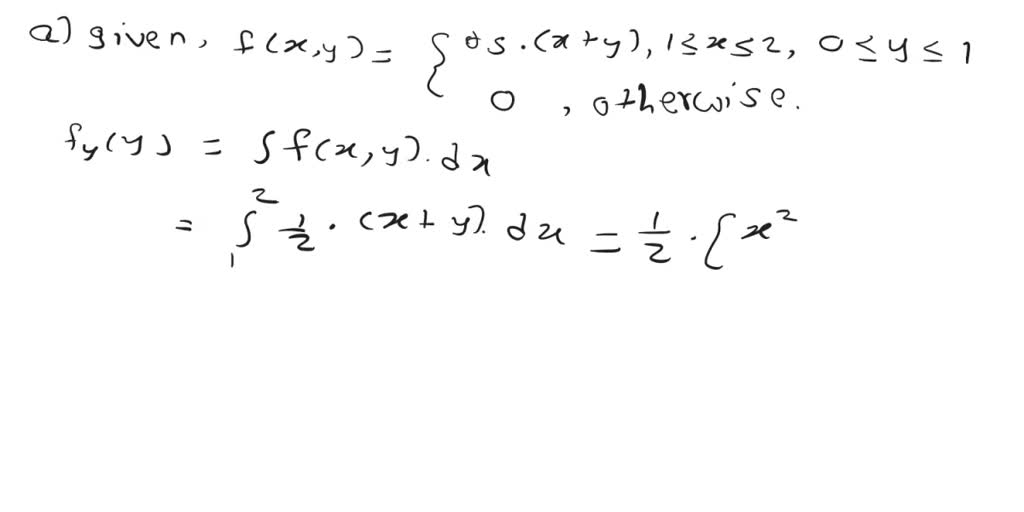 a) given, f(x,y) = { 0s.(x+y), 1≤x≤2, 0≤y≤1
0, otherwise.
fy(y) = ∫f(x,y).dx
= ∫₁² 1/2 . (x+y). dx = 1/2 . [x²